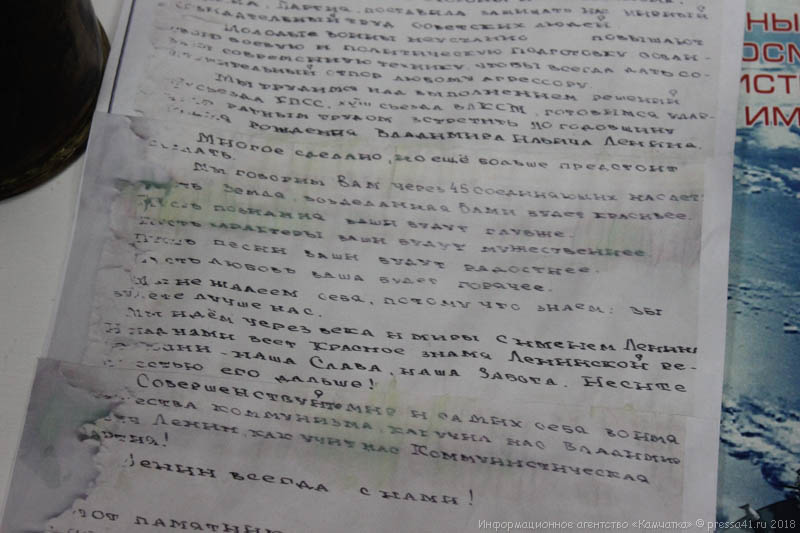 Партия поставила защищать на мирный
созидательный труд советских людей.
Молодые воины неустанно повышают
свою боевую и политическую подготовку осваи-
вают современную технику, чтобы всегда дать со-
крушительный отпор любому агрессору.
Мы трудимся над выполнением решений
съезда КПСС, XVIII съезда ВЛКСМ, готовимся удар-
ным ратным трудом встретить 110 годовщину
рождения Владимира Ильича Ленина.
Многое сделано, но ещё больше предстоит
сделать.
Мы говорим Вам через 45 соединяющих нас лет:
Пусть Земля, возделанная Вами будет красивее.
Пусть познания ваши будут глубже.
Пусть характеры ваши будут мужественнее.
Пусть песни ваши будут радостнее.
Пусть любовь ваша будет горячее.
Мы не жалеем себя, потому что знаем: вы
будете лучше нас.
Мы идём через века и миры с именем Ленина
и над нами веет Красное знамя Ленинской ре-
волюции - наша Слава, наша Забота. Несите
с честью его дальше!
Совершенствуйте мир и самих себя во имя
торжества коммунизма, как учил нас Владимир
Ильич Ленин, как учит нас Коммунистическая
партия!
Ленин всегда с нами!
этот памятник
НЫ
ОСМ
ИСТ
ИМ
Информационное агентство «Камчатка» © pressa41.ru 2018